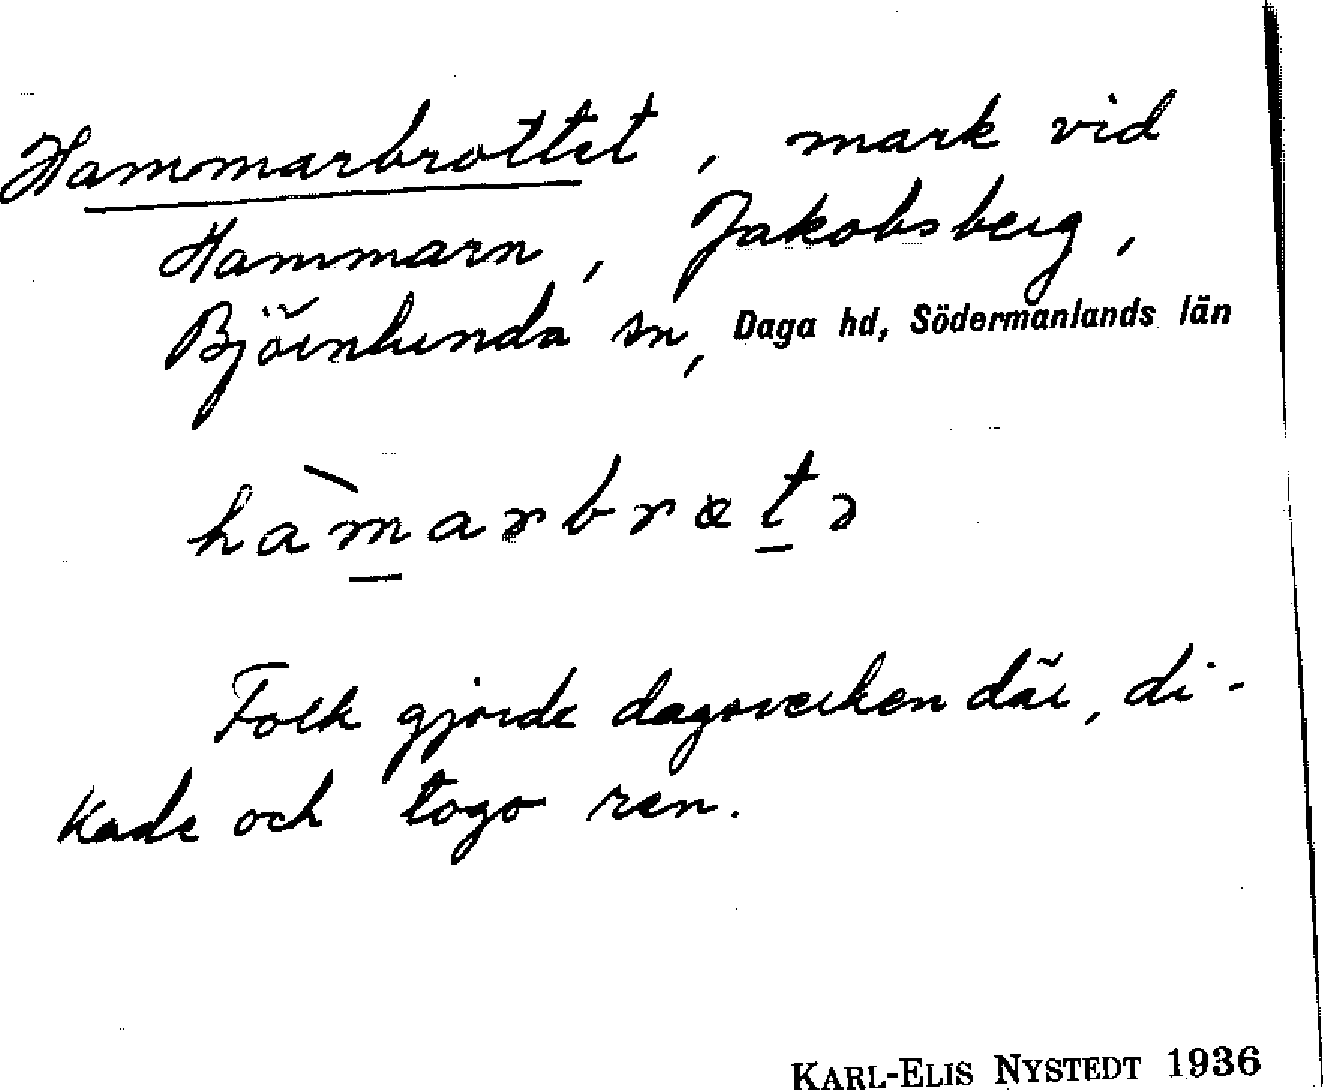 Hammarbrottet, mark vid
Hammarn, Jakobsberg,
Björnlunda sn, Daga hd, Södermanlands län
hàmarbrætə
Folk gjorde dagsverken där, di-
kade och togo ren.
KARL-ELIS NYSTEDT 1936